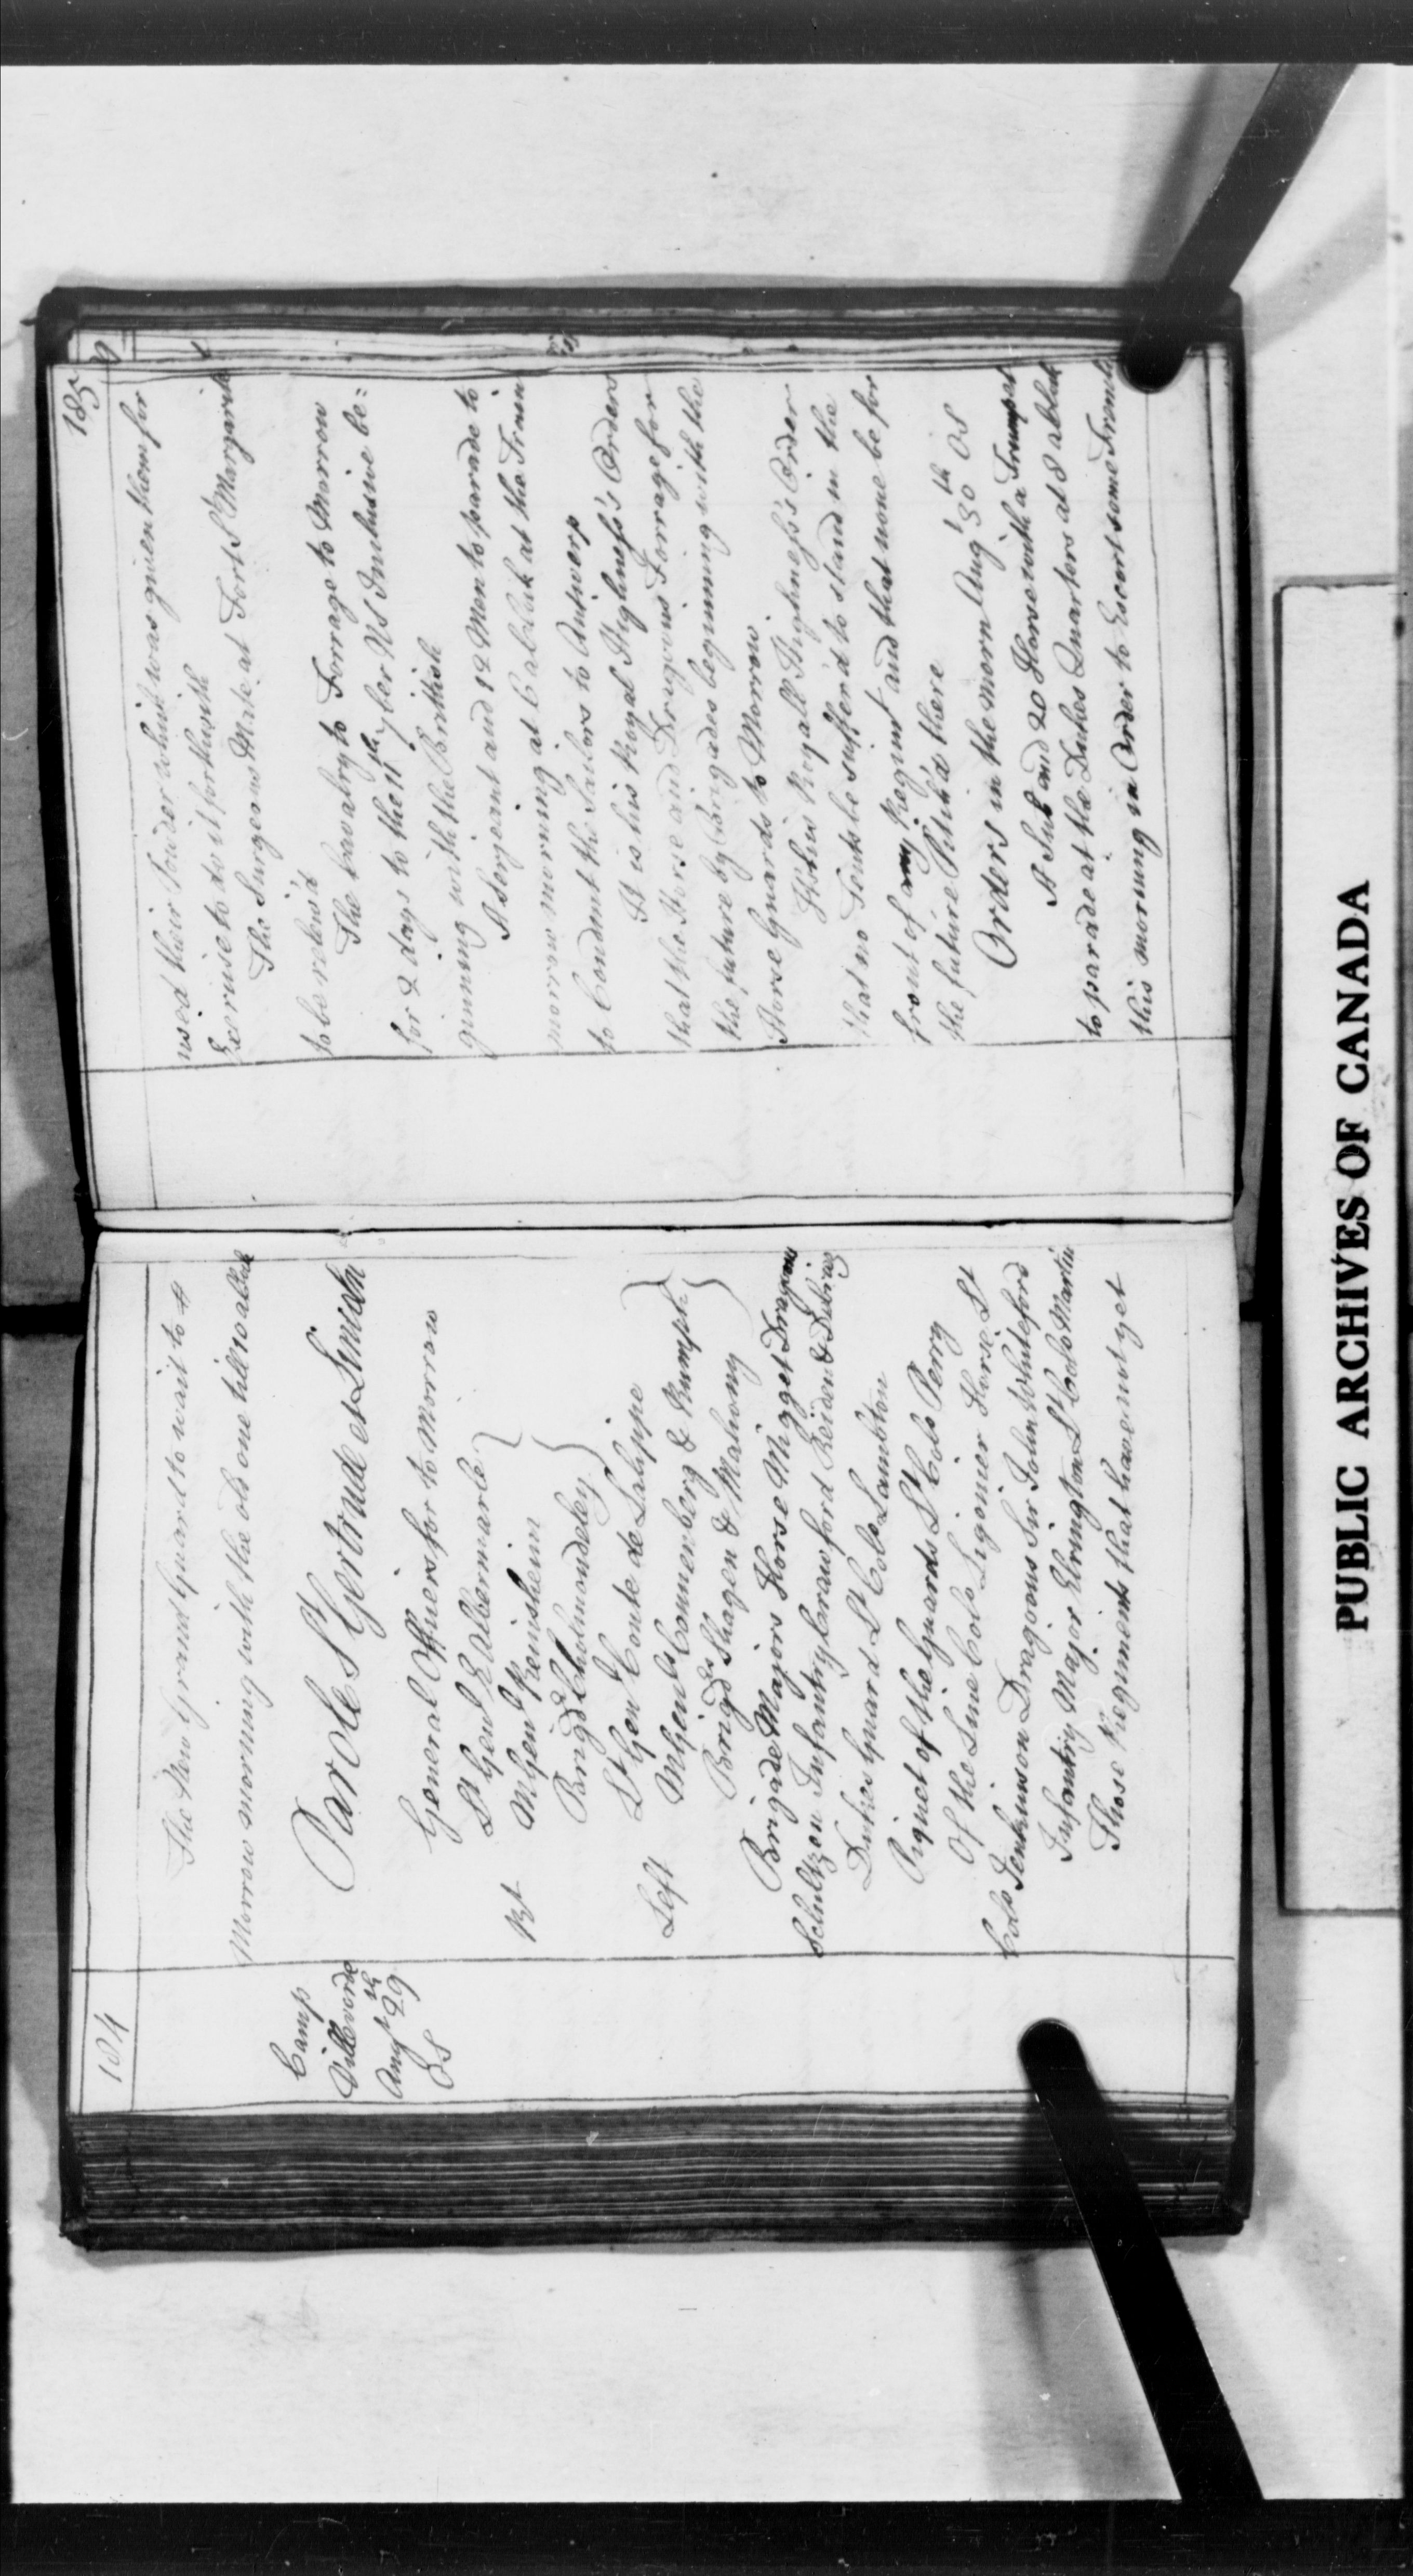 184
The New Grand Guard to wait to
Morrow morning with the old one till 10 aClock
Camp
Villvorde
Augst 29th
OS
Parole St Gertrude et Lincoln
General Officers for to Morrow
Rt
Lt Genl E Albermarle
M Genl
Brigdr Cholmondeley
Left
Lt Genl Conte de La Lippe
M Genls Cannenberg & Rumpf
Brigdrs Haagen & Mahony
Brigade Majors Horse Migget Dragoons
Schultzen Infantry Crawford Reiden &
Dukes Guard Lt Colo Lambton
Piquet of the Guards Lt Colo Perry
Of the Line Colo Ligonier Horse Lt
Colo Jenkinson Dragoons Sir John Whiteford
Infantry Major Elrington Lt Colo Martin
Those Regiments that have not yet
185
used their Powder which was given them for
Exercise to do it forthwith
The Surgeons Mate at Fort St Margarite
to be reliev'd
The Cavalry to Forrage to Morrow
for 2 days to the 11th 7ber NS Inclusive be=
ginning with the British
A Serjeant and 12 Men to parade to
morrow morning at 6 aClock at the Train
to Conduct the Sailors to Antwerp
It is his Royal Highness's Orders
that the Horse and Dragoons Forrage for
the future by Brigades beginning with the
Horse Guards to Morrow.
It is his Royall Highness's Order
that no Tents be suffer'd to stand in the
front of any Regimt and that none be for
the future Pitch'd there
Orders in the morn Augt 30th OS
A Sub and 20 Horse with a Trumpet
to parade at the Dukes Quarters at 8 aClock
this morning in Order to Escort some French
PUBLIC ARCHIVES OF CANADA